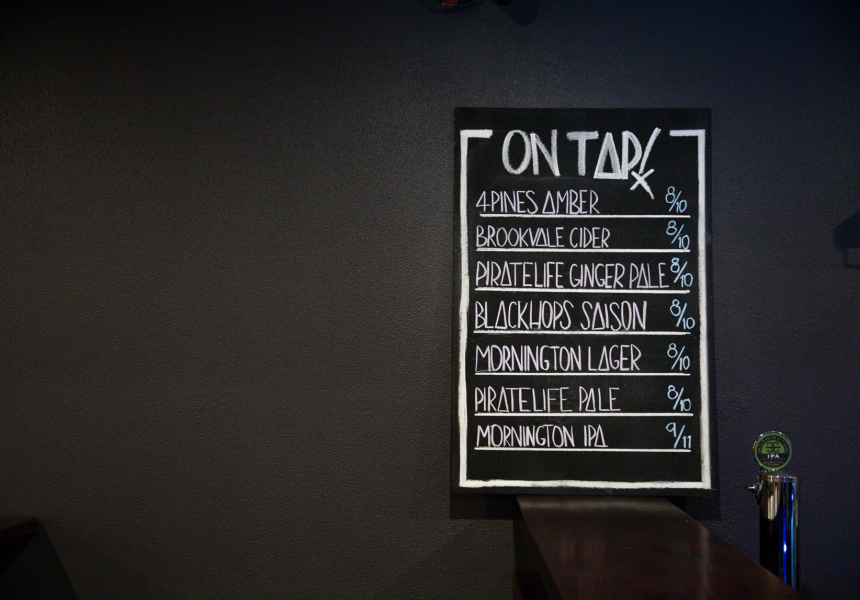 ON TAP!
4 PINES AMBER 8/10
BROOKVALE CIDER 8/10
PIRATELIFE GINGER PALE 8/10
BLACKHOPS SAISON 8/10
MORNINGTON LAGER 8/10
PIRATELIFE PALE 8/10
MORNINGTON IPA 9/11
IPA